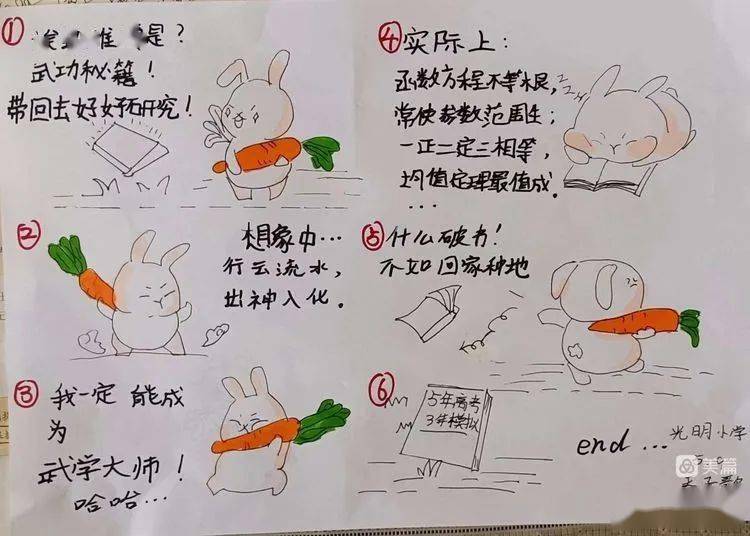 ①
是?
武功秘籍!
带回去好好研究!
②
想象中…
行云流水,
出神入化。
③
我一定 能成
为
武学大师!
哈哈…
④
实际上:
函数方程不等根,
常使参数范围生;
一正二定三相等,
均值定理最值成.
…
⑤
什么破书!
不如回家种地
⑥
5年高考
3年模拟
end …
光明小学
美篇